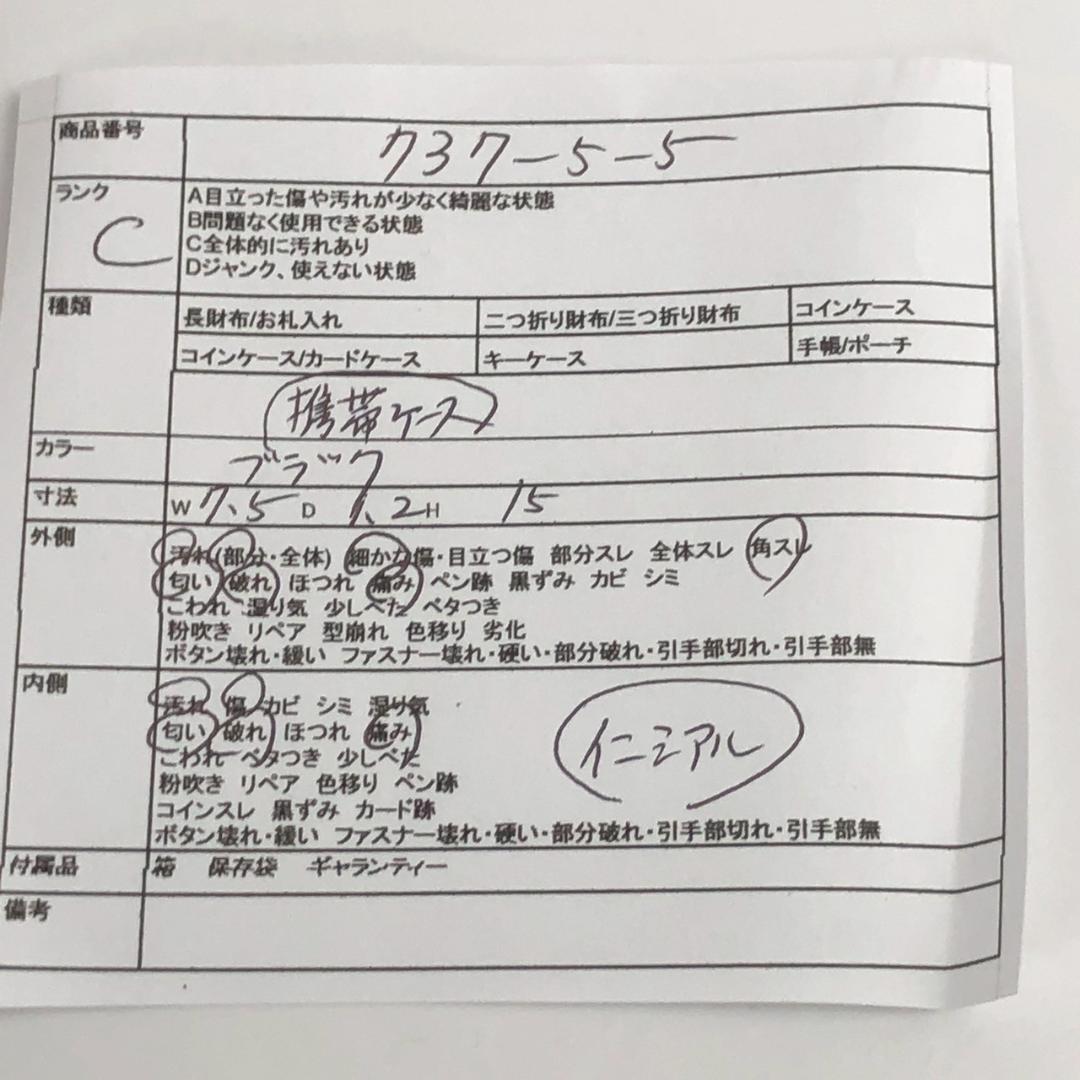 商品番号 737-5-5
ランク C
A目立った傷や汚れが少なく綺麗な状態
B問題なく使用できる状態
C全体的に汚れあり
Dジャンク、使えない状態
種類
長財布/お札入れ 二つ折り財布/三つ折り財布 コインケース
コインケース/カードケース キーケース 手帳/ポーチ
携帯ケース
カラー ブラック
寸法 W 7.5 D 1.2 H 15
外側
汚れ(部分・全体) 細かな傷・目立つ傷 部分スレ 全体スレ 角スレ
匂い 破れ ほつれ 痛み ペン跡 黒ずみ カビ シミ
こわれ 湿り気 少しべた ベタつき
粉吹き リペア 型崩れ 色移り 劣化
ボタン壊れ・緩い ファスナー壊れ・硬い・部分破れ・引手部切れ・引手部無
内側
汚れ 傷 カビ シミ 湿り気
匂い 破れ ほつれ 痛み
こわれ ベタつき 少しべた
粉吹き リペア 色移り ペン跡
コインスレ 黒ずみ カード跡
ボタン壊れ・緩い ファスナー壊れ・硬い・部分破れ・引手部切れ・引手部無
イニシアル
付属品 箱 保存袋 ギャランティー
備考